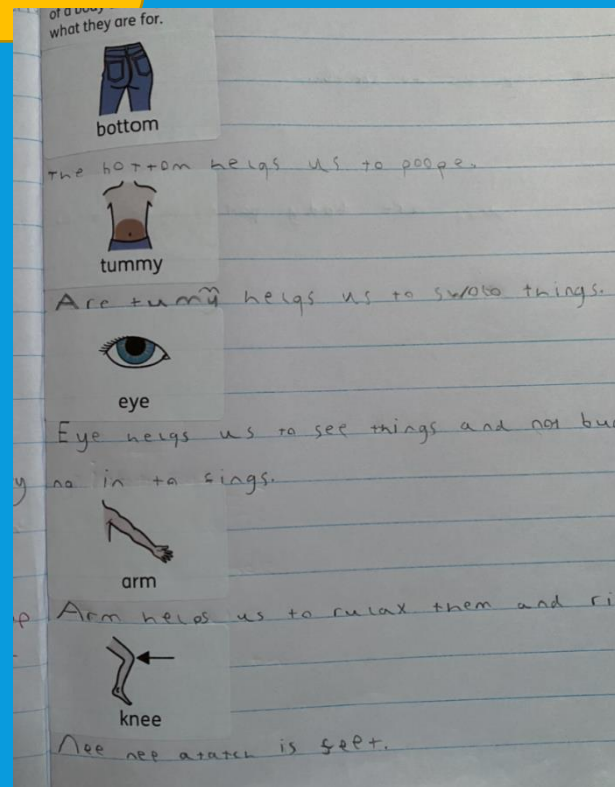 of a body
what they are for.
bottom
The bottom helgs us to poope.
tummy
Are tumy helgs us to swolo things.
eye
Eye helgs us to see things and not bu
y no in to sings.
arm
Arm helps us to rulax them and ri
knee
Nee nee atatch is feet.